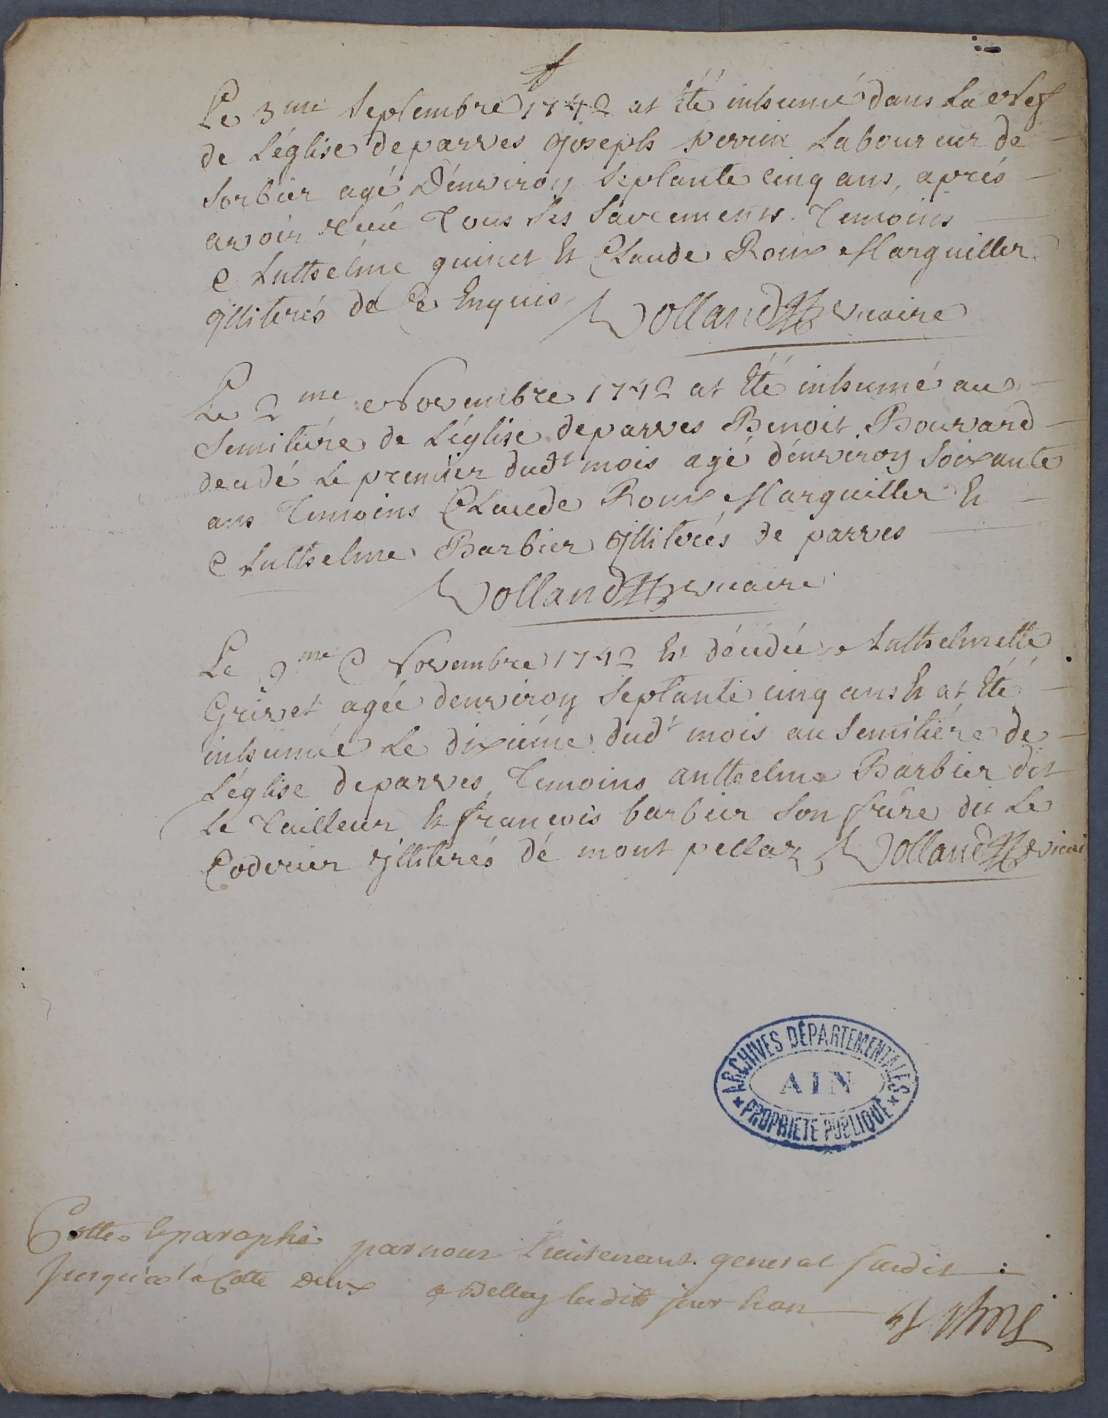 Le 3me Septembre 1742 at été inhumé dans La Nef
de L'église de parves joseph perrin Laboureur de
Sorbier agé D'environ Septante cinq ans, aprés
avoir reçu Tous Les Sacrements. Temoins
Anthelme guinet Et Claude Roux Marguiller
illiterés de Ce Enquis Volland vicaire
Le 2me Novembre 1742 at Eté inhumé au
Semitiére de L'église de parves Benoit Bouvard
decedé Le premier dudt mois agé d'environ Soixante
ans Temoins Claude Roux Marguiller Et
Anthelme Barbier illiterés de parves
Volland vicaire
Le 9me Novembre 1742 Est décedée Anthelmette
Grivet agée d'environ Septante cinq ans Et at Eté
inhumée Le dixiéme dudt mois au Semitiére de
L'église de parves, Temoins anthelme Barbier dit
Le Tailleur Et françois barbier Son frére dit Le
Codurier illiterés de mont pellaz Volland vicai
Cotté et paraphé par nous Lieutenant general susdit
jusques à la Cotte deux a Belley lesdits jour et an
ARCHIVES DÉPARTEMENTALES
AIN
PROPRIETE PUBLIQUE